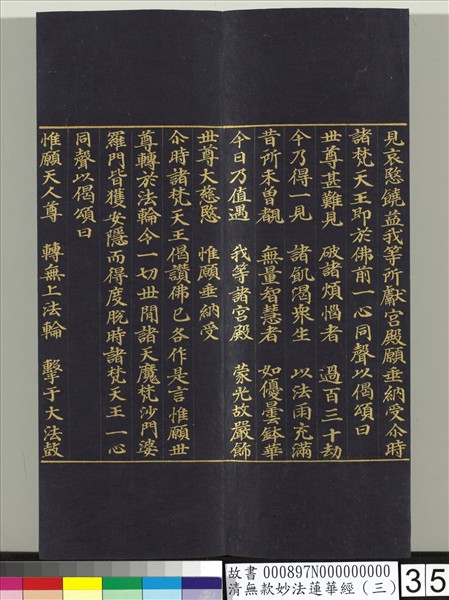 見哀愍饒益我等所獻宮殿願垂納受尒時
諸梵天王即於佛前一心同聲以偈頌曰
世尊甚難見　破諸煩惱者　過百三十劫
今乃得一見　諸飢渴衆生　以法雨充滿
昔所未曾覩　無量智慧者　如優曇鉢華
今日乃值遇　我等諸宮殿　蒙光故嚴飾
世尊大慈愍　惟願垂納受
尒時諸梵天王偈讚佛已各作是言惟願世
尊轉於法輪令一切世間諸天魔梵沙門婆
羅門皆獲安隱而得度脫時諸梵天王一心
同聲以偈頌曰
惟願天人尊　轉無上法輪　擊于大法鼓
故書 000897N000000000
清無款妙法蓮華經（三）
35